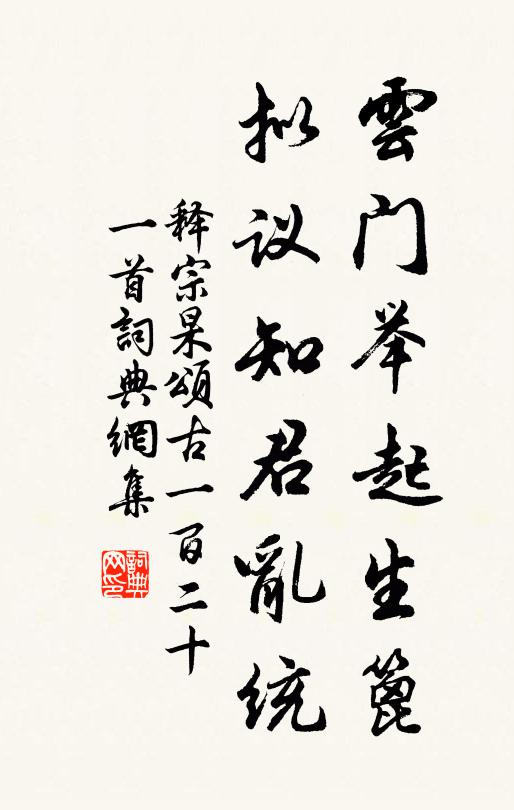 雲门举起生篦
拟议知君亂统
释宗杲頌古一百二十
一首詞典網集
詞典
网印